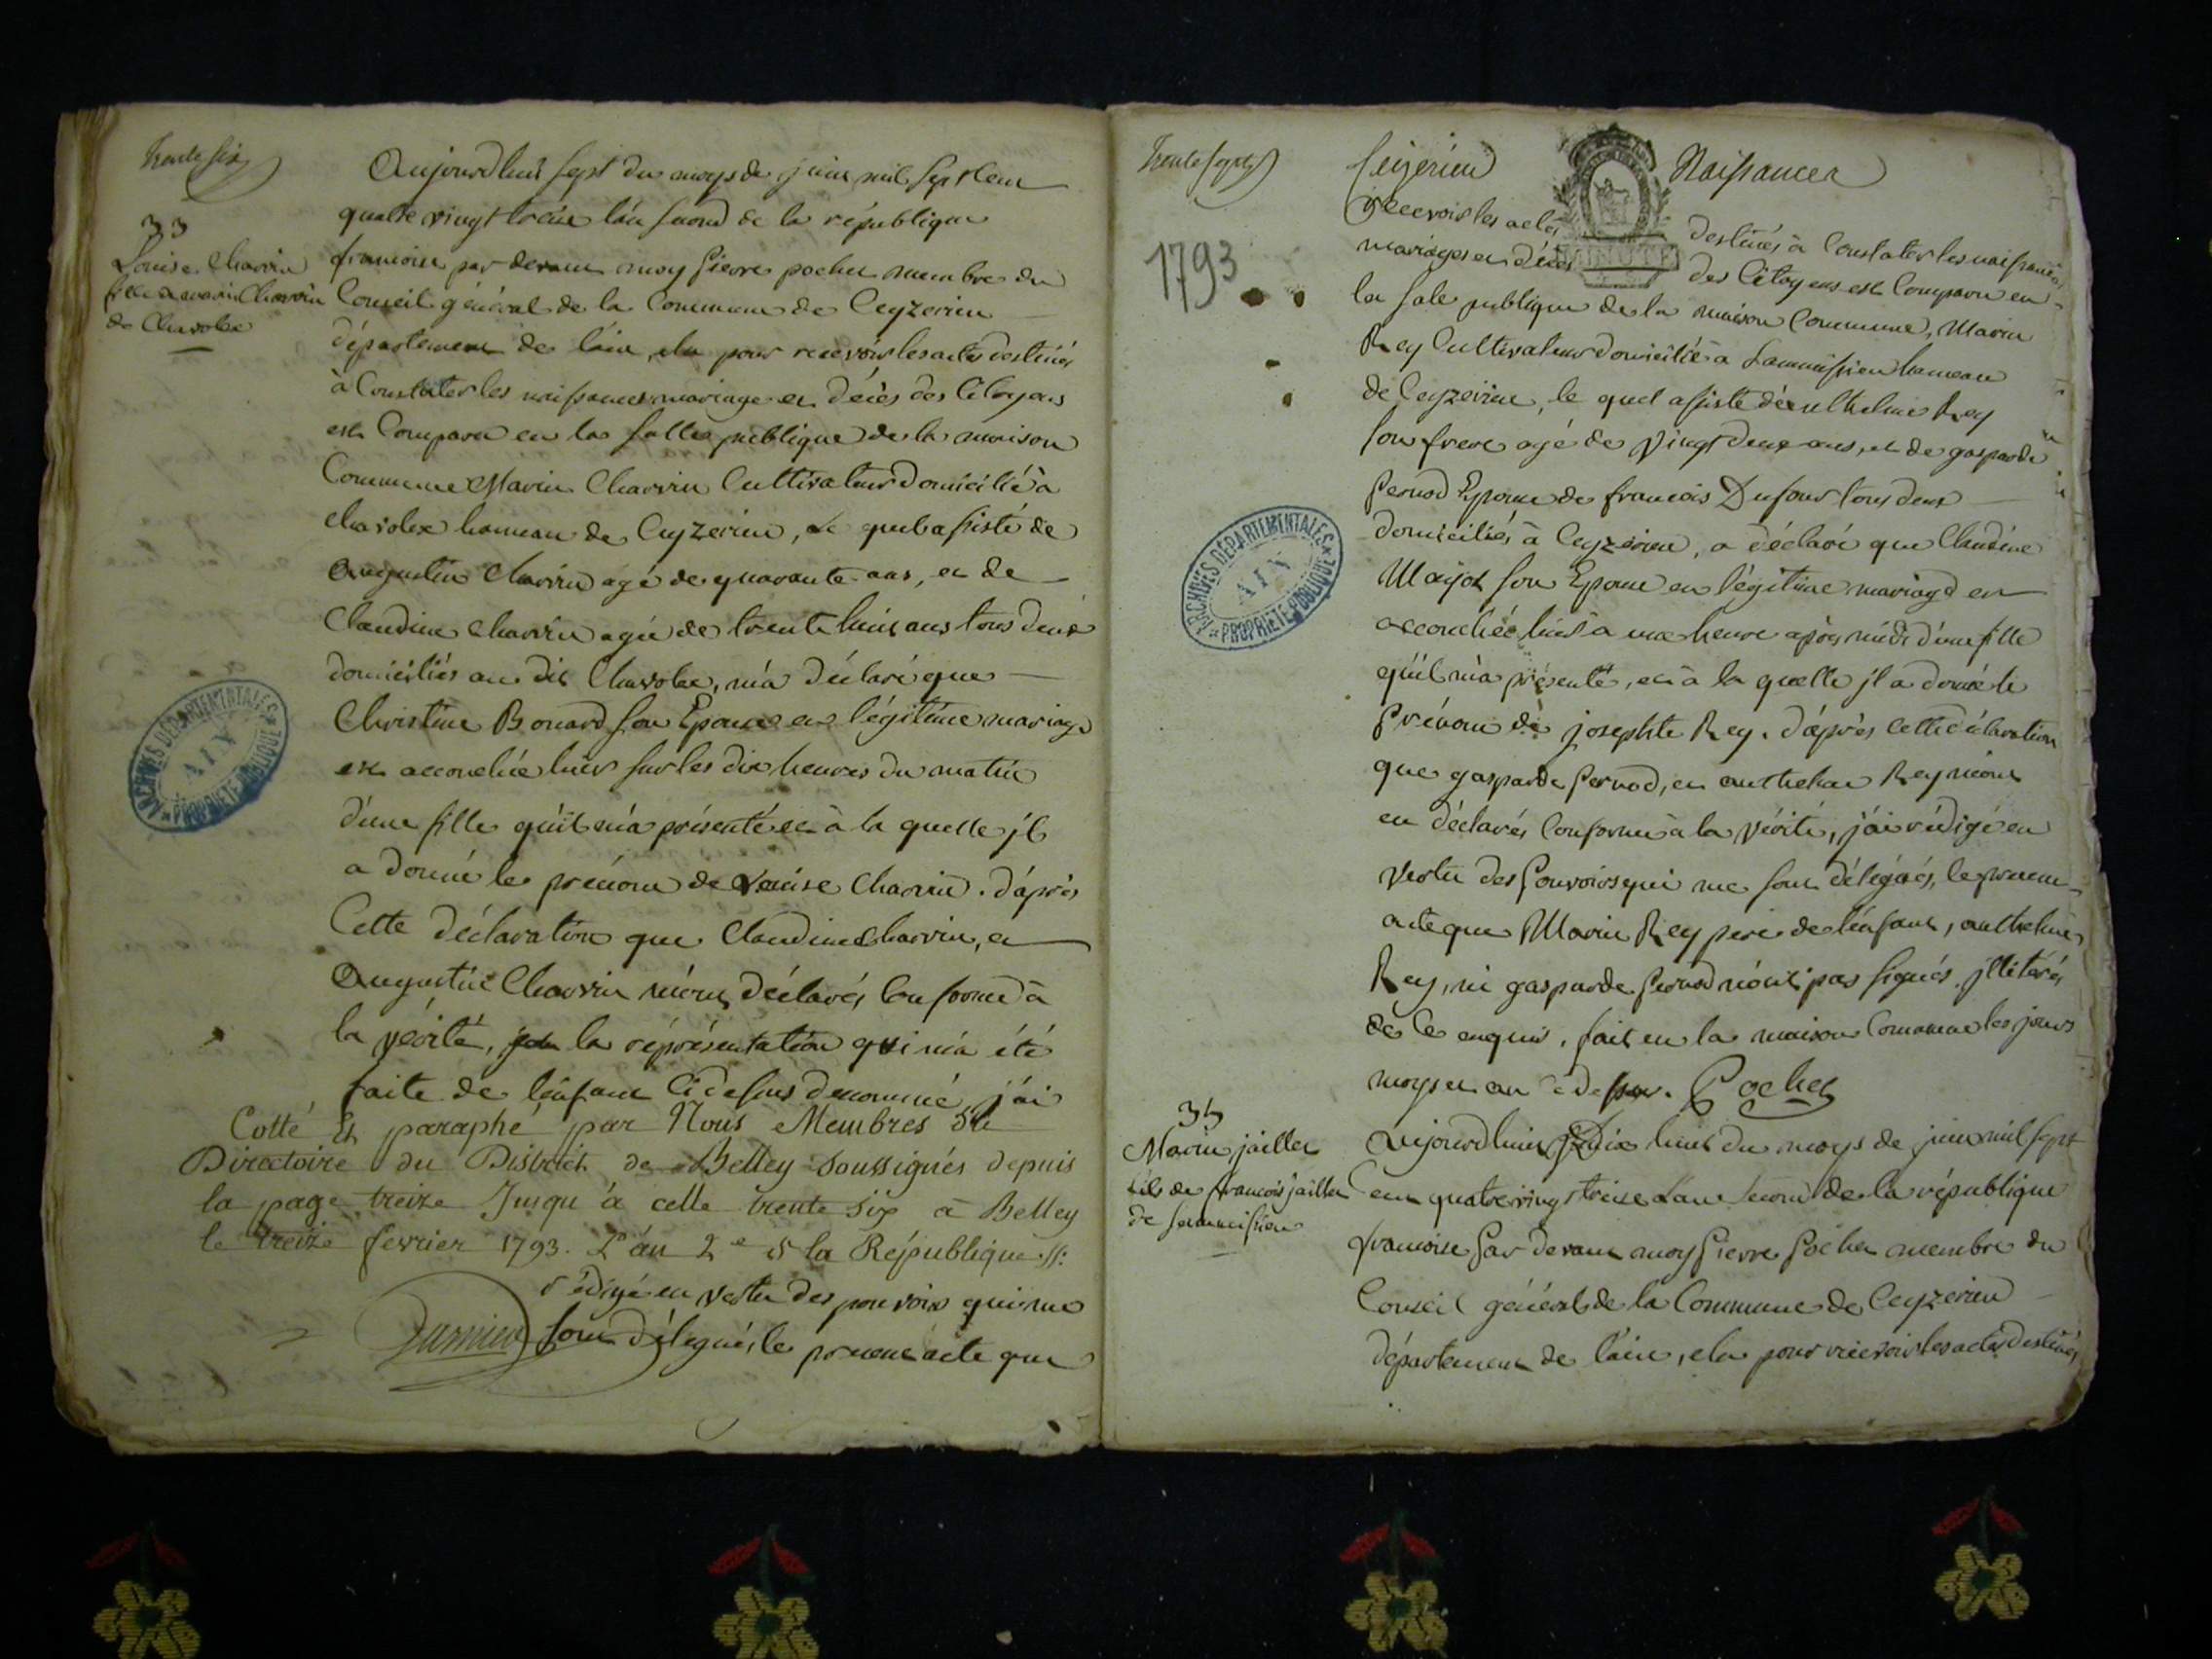 Trente six
33
Louise Charvin
fille de marin Charvin
de Chavolex
Aujourdhuis sept du moys de juin mil sept cent
quatre vingt treize l'an second de la république
francoise par devant moy pierre pochet membre du
Conseil général de la Commune de Ceyzerieu
département de l'ain, elu pour recevoir les actes destinés
à Constater les naissances mariage et décès des Citoyens
est Comparu en la salle publique de la maison
Commune Marin Charvin Cultivateur domicilié à
chavolex hameau de Ceyzerieu, le quel assisté de
Augustin Charvin agé de quarante ans, et de
Claudine Charvin agée de trente huit ans tous deux
domiciliés au dit Chavolex, m'a déclaré que
Christine Bonard son Epouse en légitime mariage
est accouchée hier sur les dix heures du matin
d'une fille qu'il m'a présenté et à la quelle jl
a donné le prénom de Louise Charvin. d'après
Cette déclaration que Claudine Charvin, et
Augustin Charvin m'ont déclarés Conforme à
la vérité, et la réprésentation qui m'a été
faite de l'enfant Ci dessus denommé, j'ai
Cotté Et paraphé par Nous Membres du
Directoire du District de Belley Soussignés depuis
la page treize Jusqu'à celle trente six à Belley
le treize fevrier 1793. L'an 2e de la République
rédigé en vertu des pouvoirs qui me
sont délegués, le présent acte que
ARCHIVES DÉPARTEMENTALES
AIN
PROPRIÉTÉ PUBLIQUE
Trente sept
Ceizerieu Naissances
1793
MINUTE
recevoir les actes destinés à Constater les naissances
mariages et décès des Citoyens est Comparu en
la sale publique de la maison Commune, Marin
Rey Cultivateur domicilié à Lammissieu hameau
de Ceyzerieu, le quel assisté d'anthelme Rey
son frere agé de vingt deux ans, et de gasparde
pernod Epouse de francois Dufour tous deux
domiciliés à Ceyzerieu, a déclaré que Claudine
Marjot son Epouse en légitime mariage est
accouchée hier à une heure après midi d'une fille
qu'il m'a présenté, et à la quelle jl a donné le
prénom de josephte Rey. d'après cette déclaration
que gasparde pernod, et anthelme Rey m'ont
déclarés Conforme à la vérité, j'ai rédigé en
vertu des pouvoirs qui me sont délégués, le présent
acte que Marin Rey pere de l'enfant, anthelme
Rey, ni gasparde pernod n'ont pas signés, jllitérés
de ce enquis. fait en la maison Commune les jours
moys et an ci dessus. Pochet
35
Marin jaillet
fils de francois jaillet
de
Aujourdhuis dix huit du moys de juin mil sept
cent quatre vingt treize l'an second de la république
francoise par devant moy pierre pochet membre du
Conseil général de la Commune de Ceyzerieu
département de l'ain, elu pour recevoir les actes destinés
ARCHIVES DÉPARTEMENTALES
AIN
PROPRIÉTÉ PUBLIQUE